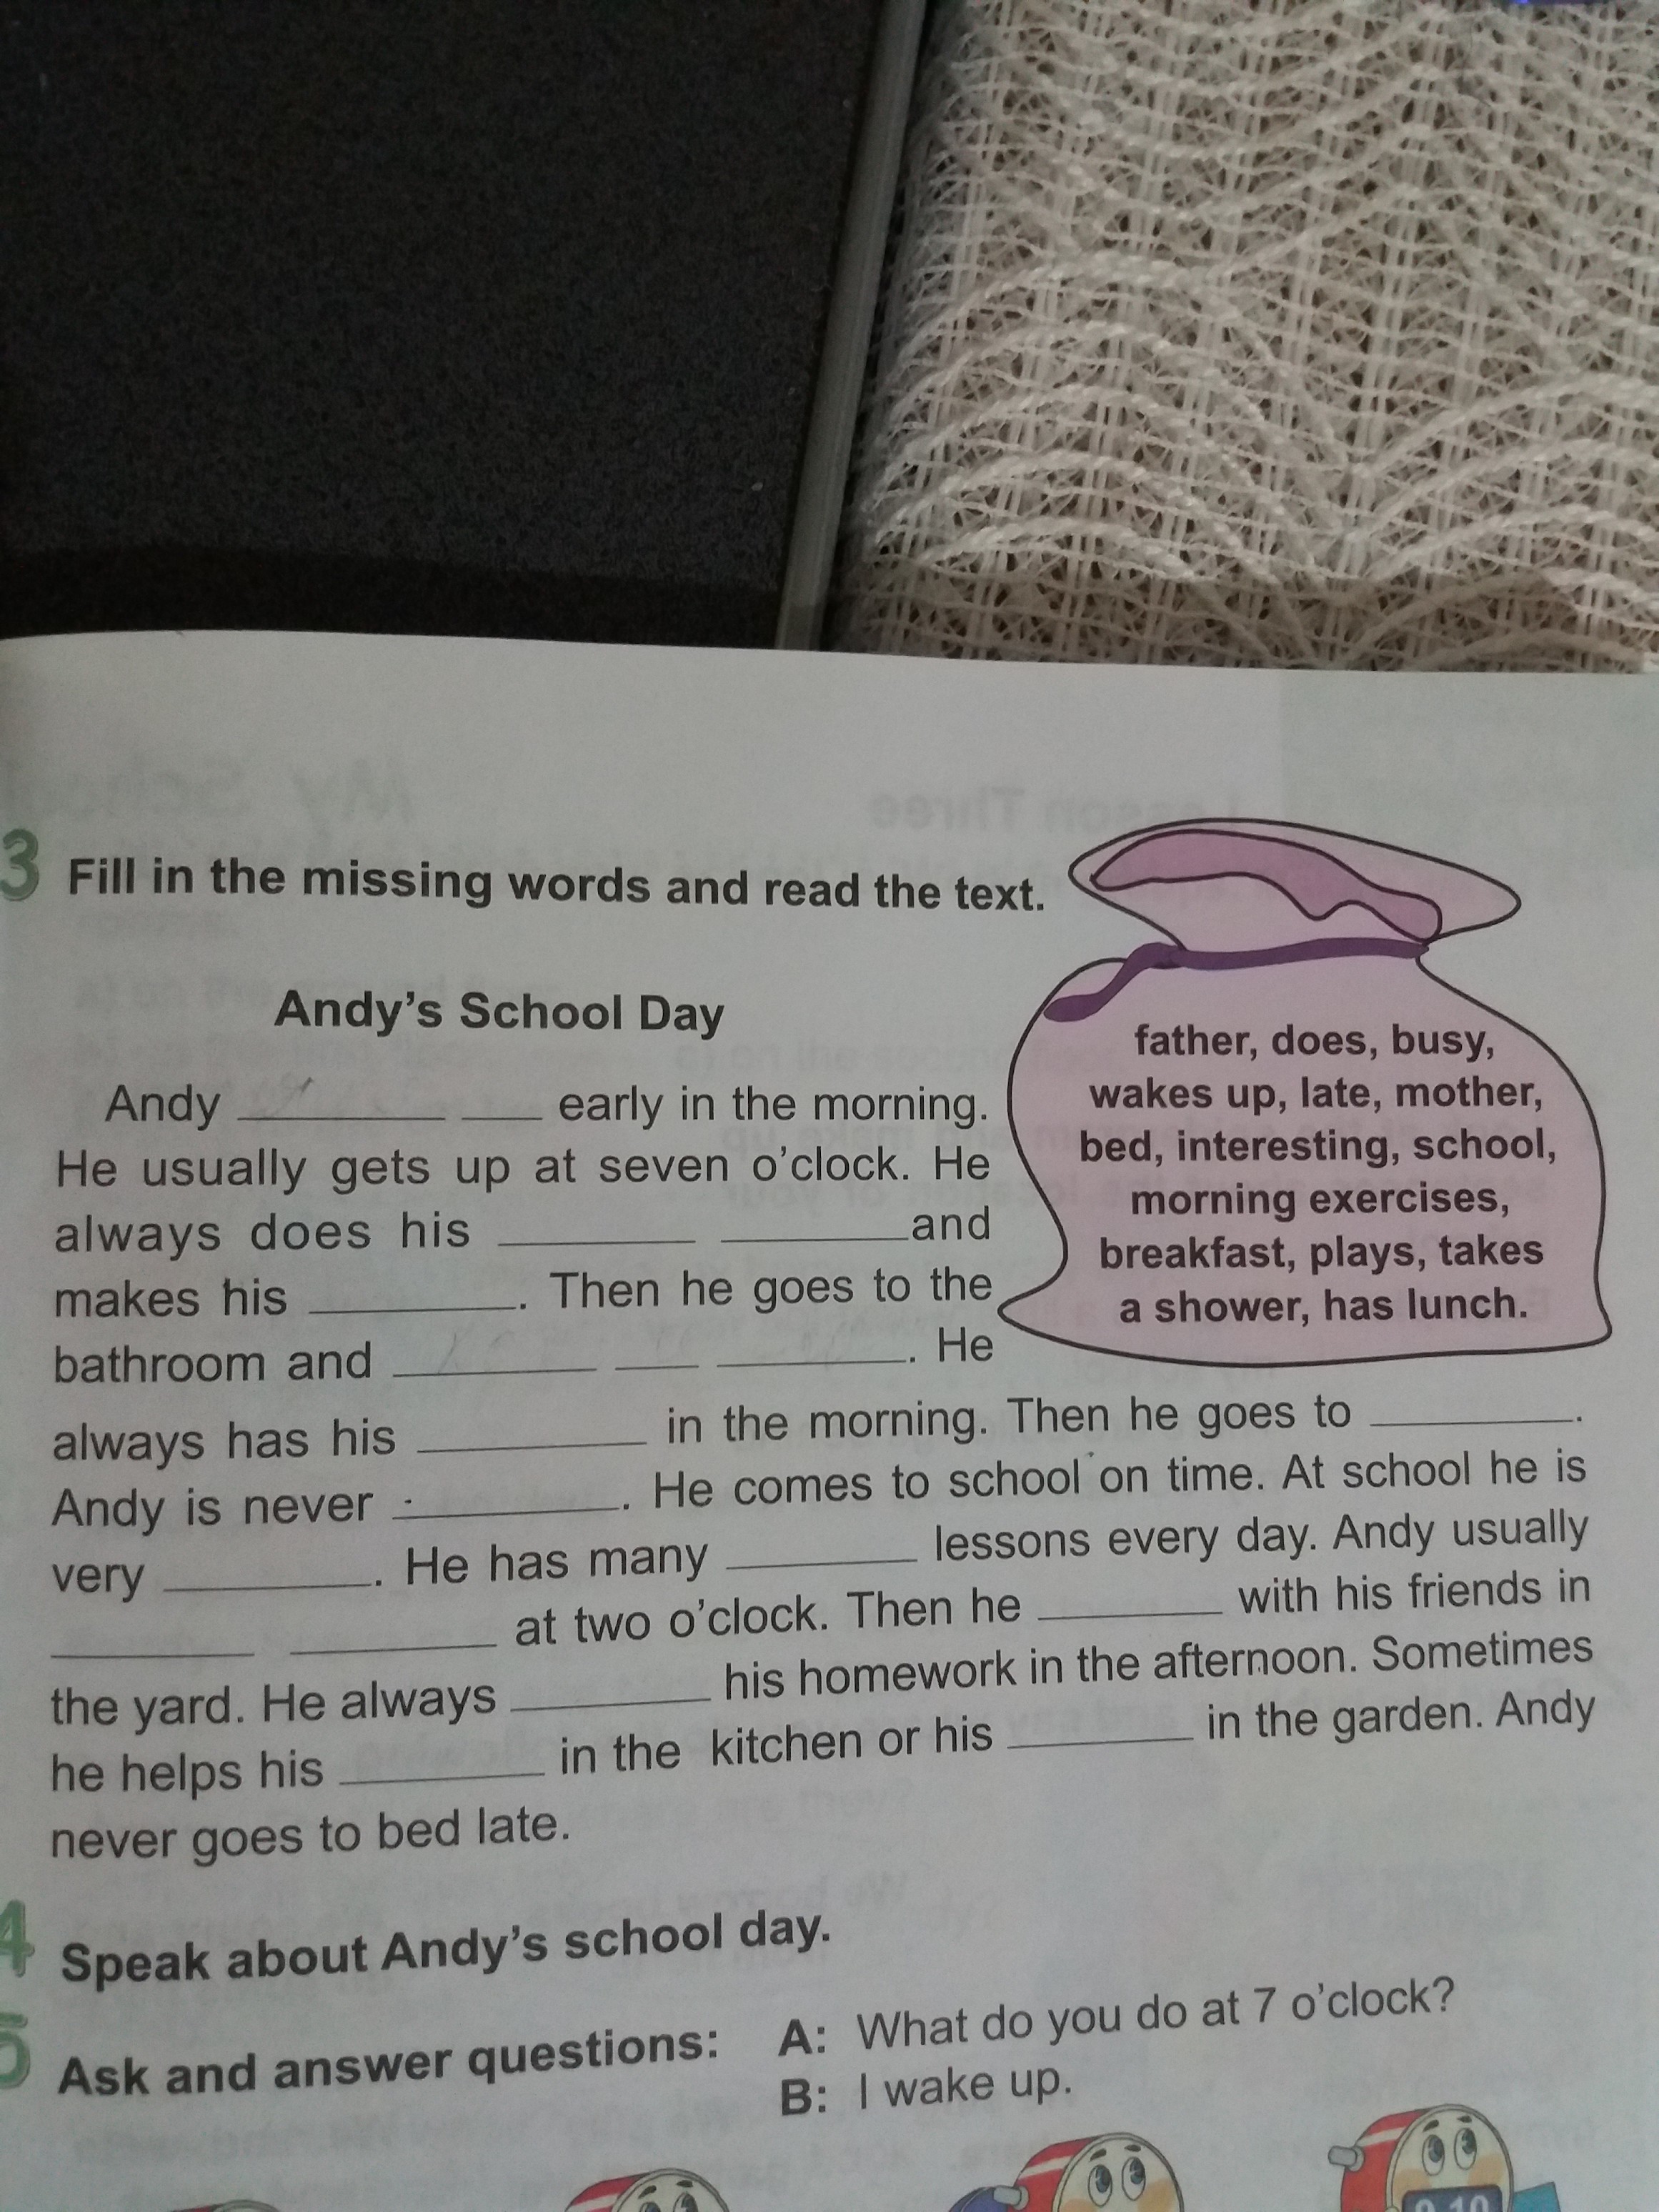 3 Fill in the missing words and read the text.
Andy's School Day
father, does, busy,
wakes up, late, mother,
bed, interesting, school,
morning exercises,
breakfast, plays, takes
a shower, has lunch.
Andy ________ ____ early in the morning.
He usually gets up at seven o'clock. He
always does his ________ ________and
makes his ________. Then he goes to the
bathroom and ________ ____ ________. He
always has his ________ in the morning. Then he goes to ________.
Andy is never ________. He comes to school on time. At school he is
very ________. He has many ________ lessons every day. Andy usually
________ ________ at two o'clock. Then he ________ with his friends in
the yard. He always ________ his homework in the afternoon. Sometimes
he helps his ________ in the kitchen or his ________ in the garden. Andy
never goes to bed late.
4 Speak about Andy's school day.
5 Ask and answer questions: A: What do you do at 7 o'clock?
B: I wake up.